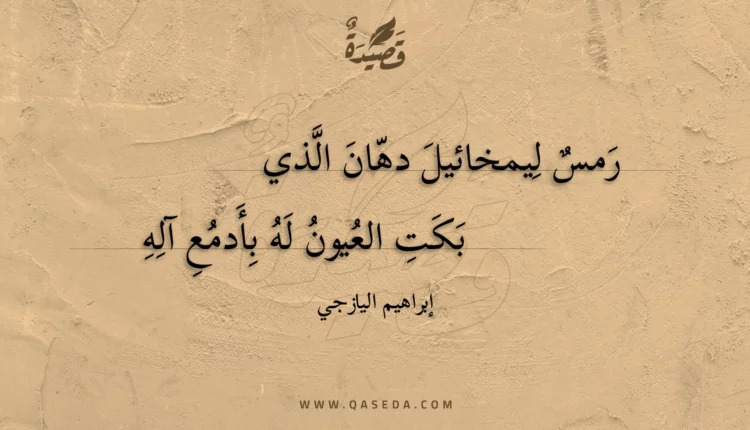 قَصِيدَةٌ
رَمسٌ لِيمخائيلَ دهّانَ الَّذي
بَكَتِ العُيونُ لَهُ بِأَدمُعِ آلِهِ
إبراهيم اليازجي
WWW.QASEDA.COM